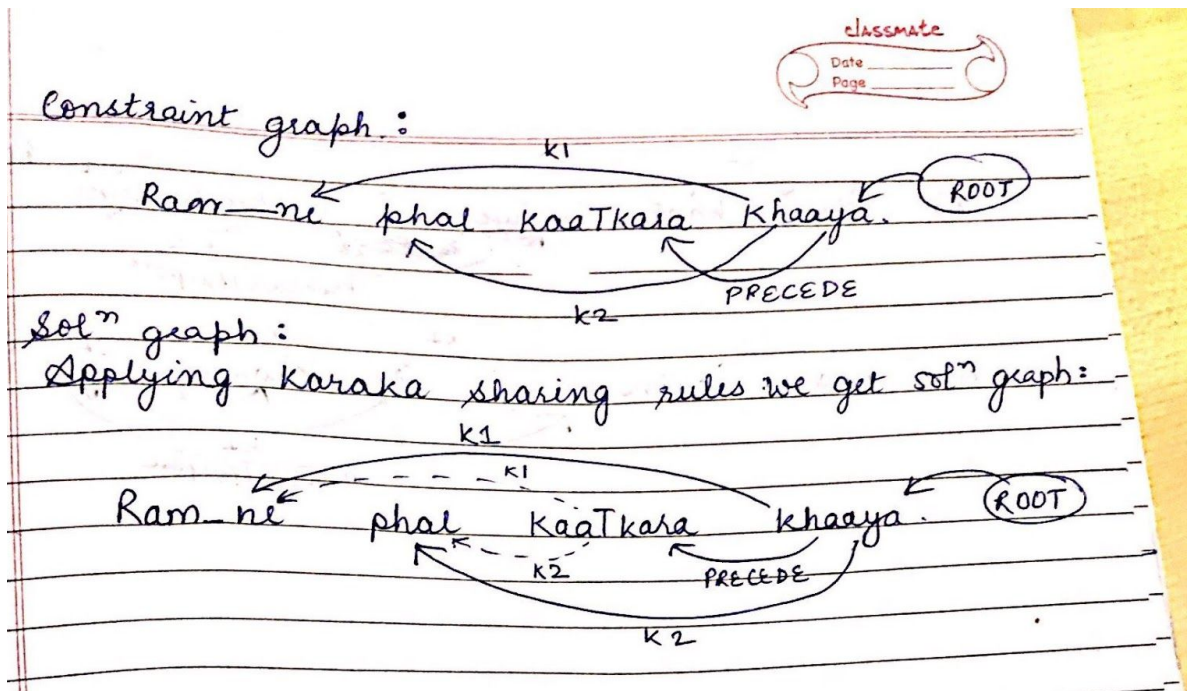 classmate
Date
Page
Constraint graph :
K1
Ram_ne phal KaaTkara Khaaya. ROOT
PRECEDE
K2
Solⁿ graph :
Applying Karaka sharing rules we get solⁿ graph:
K1
K1
Ram_ne phal KaaTkara Khaaya. ROOT
K2 PRECEDE
K2